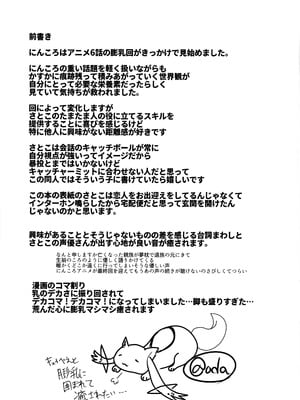 前書き
にんころはアニメ6話の膨乳回がきっかけで見始めました。
にんころの重い話題を軽く扱いながらも
かすかに痕跡残って積みあがっていく世界観が
自分にとって必要な栄養素だったらしく
見ていて気持ちが救われました。
回によって変化しますが
さとこのたまたま人の役に立てるスキルを
提供することに喜びを感じるけど
特に他人に興味がない距離感が好きです
さとこは会話のキャッチボールが常に
自分視点が強いってイメージだから
暴投とまではいかないけど
キャッチャーミットに合わせない人だと思って
この同人ではそういう子に書けていたら嬉しいです
この本の表紙のさとこは恋人をお出迎えをしてるんじゃなくて
インターホン鳴らしたから宅配便だと思って玄関を開けたん
じゃないのかと思います。
興味があることとそうじゃないものの差を感じる台詞まわしと
さとこの声優さんが出す心地が良い音が癒されます。
なんと申しますか亡くなった親族が夢枕で遺族の元にきて
生前のころのように優しく語りかけてくる
暖かくどこか遠くに行ってしまいそうな優しい声
にんころアニメが最終回を迎えてもうあの声の続きが聴けないのさびしくてつらい
漫画のコマ割り
乳のデカさに振り回されて
デカコマ！デカコマ！になってしまいました…脚も盛りすぎた…
荒んだ心に膨乳マシマシ癒されます
膨乳に
囲まれて
癒されたい…